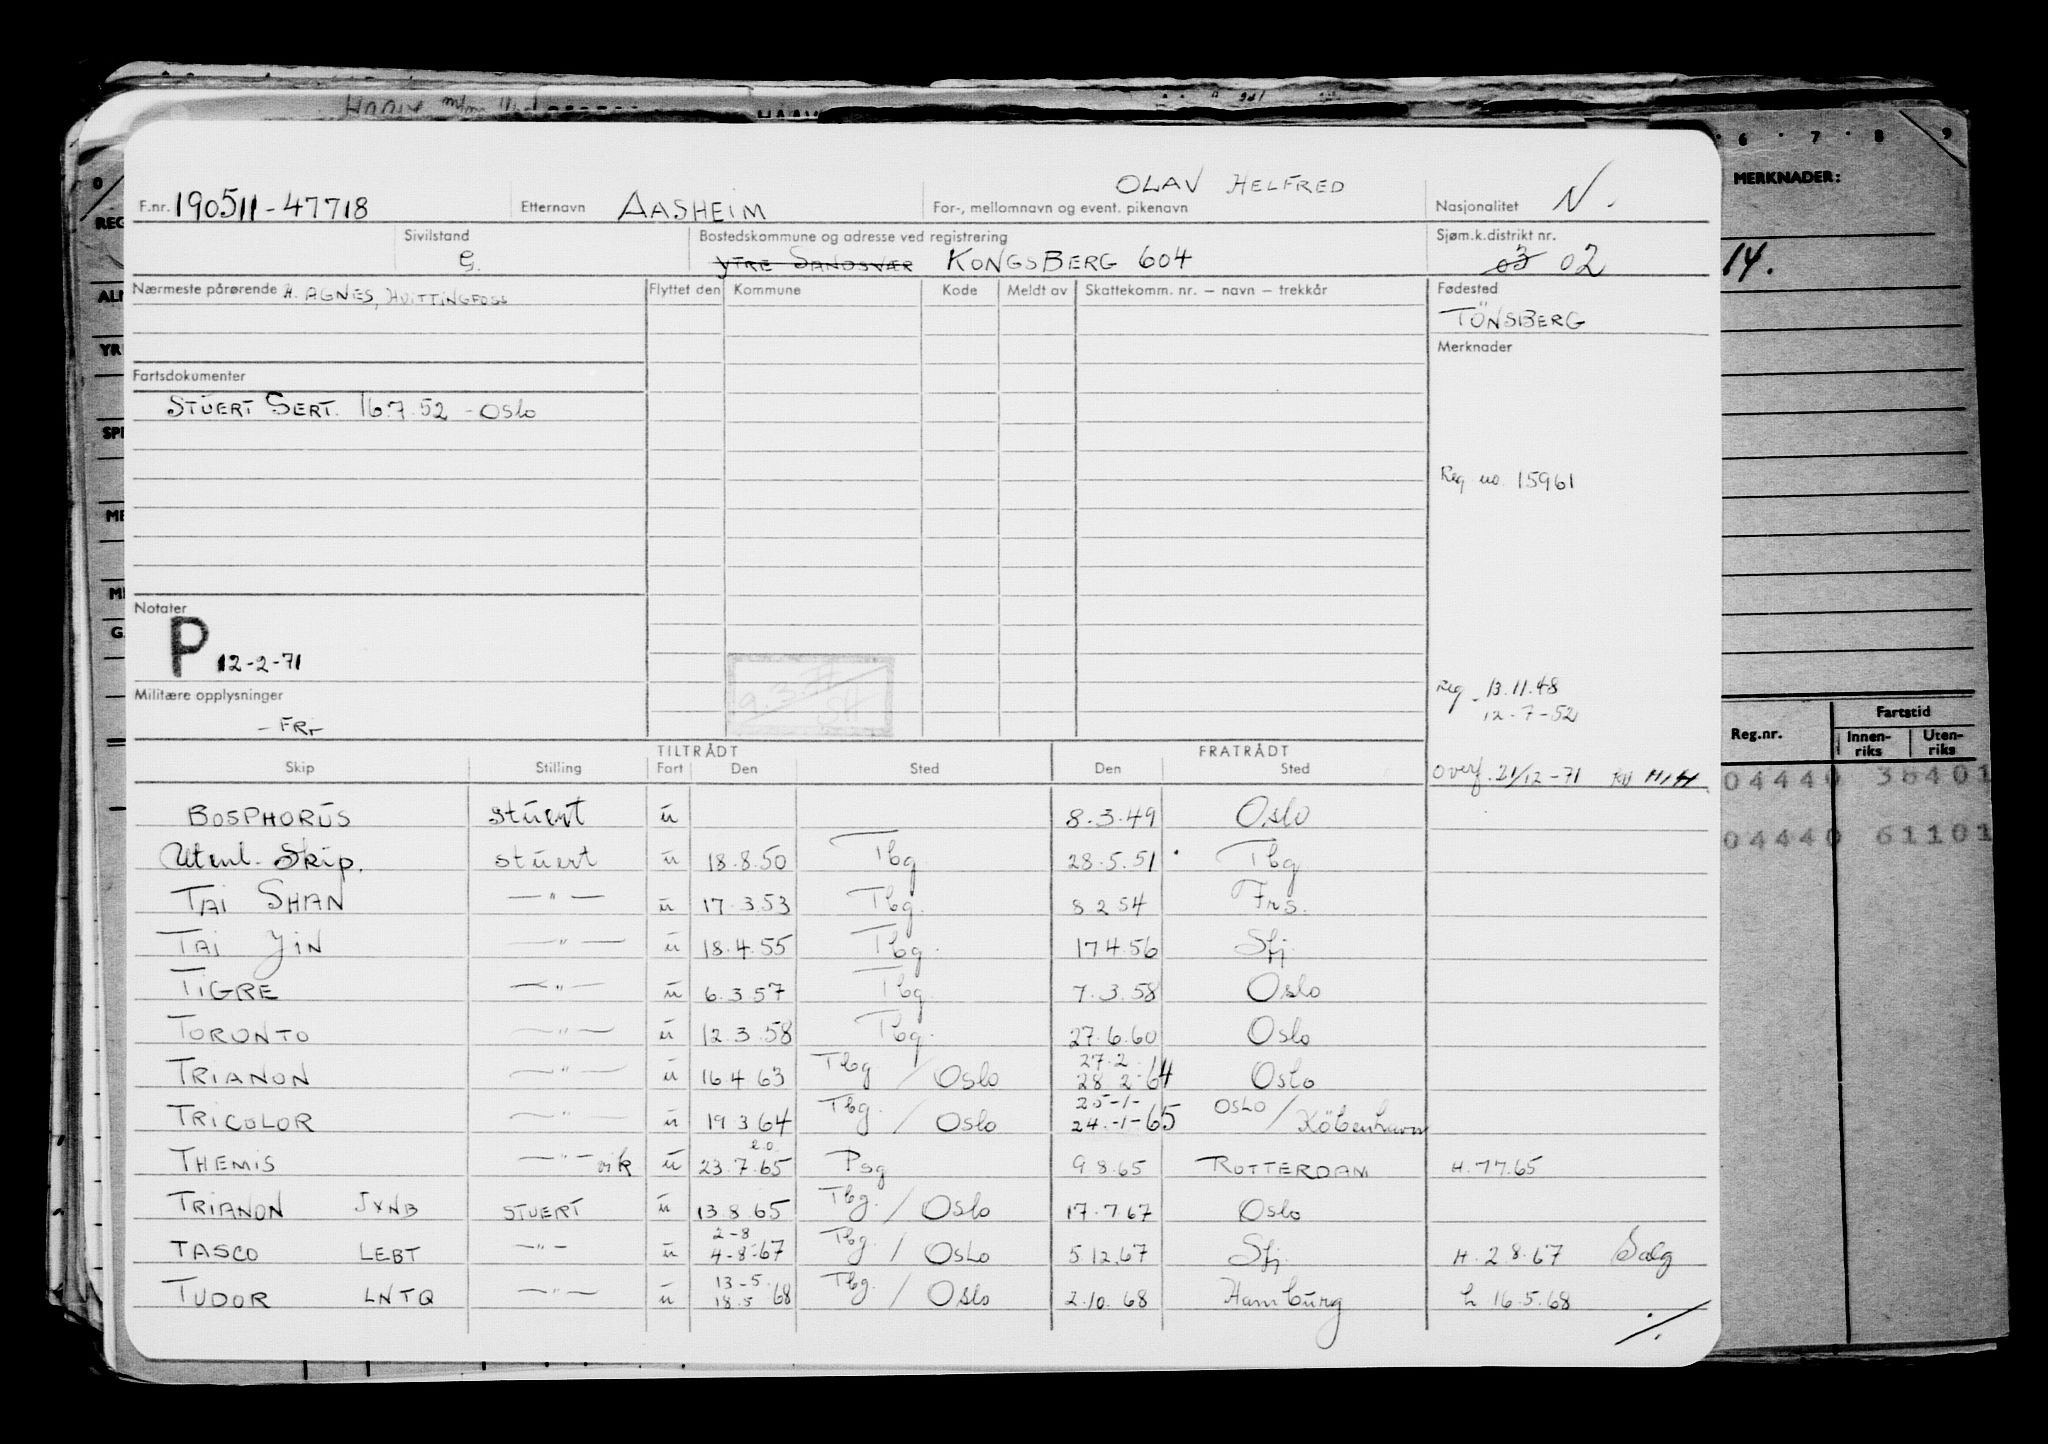 HAAV
OLAV HELFRED
F.nr. 190511-47718 Etternavn AASHEIM For-, mellomnavn og event. pikenavn Nasjonalitet N.
Sivilstand Bostedskommune og adresse ved registrering Sjøm.k.distrikt nr.
G. YTRE SANDSVÆR KONGSBERG 604 03 02
Nærmeste pårørende H. AGNES, HVITTINGFOSS Flyttet den Kommune Kode Meldt av Skattekomm. nr. — navn — trekkår Fødested
TÖNSBERG
Merknader
Fartsdokumenter
STUERT SERT. 16.7.52 - OSLO
Reg no. 15961
Notater
P 12-2-71
9.3.71
SH
Militære opplysninger
- FRI-
Reg - 13.11.48
12-7-52
TILTRÅDT FRATRÅDT
Skip Stilling Fart Den Sted Den Sted
Overf. 21/12-71
BOSPHORUS stuert u 8.3.49 Oslo
Utenl. Skip. stuert u 18.8.50 Tbg 28.5.51 Tbg
TAI SHAN —"— u 17.3.53 Tbg. 8 2 54 Frs.
TAI YIN —"— u 18.4.55 Tbg. 17 4 56 Sfj.
TIGRE —"— u 6.3.57 Tbg. 7.3.58 Oslo
TORONTO —"— u 12.3.58 Tbg. 27.6.60 Oslo
TRIANON —"— u 16 4 63 Tbg / Oslo 27.2 28.2-64 Oslo
TRICOLOR —"— u 19 3 64 Tbg. / Oslo 25-1- 24.-1-65 OSLO / Köbenhavn
THEMIS —"— vik u 20. 23.7.65 Psg 9.8.65 ROTTERDAM H.17.65
TRIANON JXNB STUERT u 13.8.65 Tbg. / Oslo 17.7.67 Oslo
TASCO LEBT —"— u 2-8 4-8-67 Tbg. / OSLO 5.12.67 Sfj. H.2.8.67 Salg
TUDOR LNTQ —"— u 13-5. 18.5 68 Tbg. / Oslo 2.10.68 Hamburg L 16.5.68
./.
6 7 8 9
MERKNADER:
14.
Reg.nr. Fartstid
Innen-riks Uten-riks
04440 38401
04440 61101